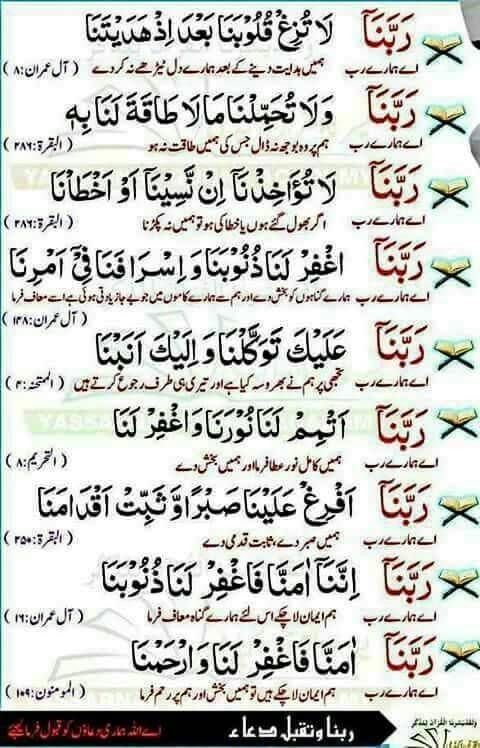 رَبَّنَاۤ لَا تُزِغْ قُلُوْبَنَا بَعْدَ اِذْ هَدَيْتَنَا
اے ہمارے رب ہمیں ہدایت دینے کے بعد ہمارے دل ٹیڑھے نہ کر دے ( آل عمران:۸ )
رَبَّنَاۤ وَلَا تُحَمِّلْنَا مَا لَا طَاقَةَ لَنَا بِهٖ
اے ہمارے رب ہم پر وہ بوجھ نہ ڈال جس کی ہمیں طاقت نہ ہو ( البقرۃ:۲۸۶ )
رَبَّنَاۤ لَا تُؤَاخِذْنَاۤ اِنْ نَّسِيْنَاۤ اَوْ اَخْطَاْنَا
اے ہمارے رب اگر بھول گئے ہوں یا خطا کی ہو تو ہمیں نہ پکڑنا ( البقرۃ:۲۸۶ )
رَبَّنَاۤ اغْفِرْ لَنَا ذُنُوْبَنَا وَ اِسْرَافَنَا فِيْۤ اَمْرِنَا
اے ہمارے رب ہمارے گناہوں کو بخش دے اور ہم سے ہمارے کاموں میں جو بے جا زیادتی ہوئی ہے اسے معاف فرما
( آل عمران:۱۴۸ )
رَبَّنَاۤ عَلَيْكَ تَوَكَّلْنَا وَ اِلَيْكَ اَنَبْنَا
اے ہمارے رب تجھی پر ہم نے بھروسہ کیا ہے اور تیری ہی طرف رجوع کرتے ہیں ( الممتحنہ:۴ )
رَبَّنَاۤ اَتْمِمْ لَنَا نُوْرَنَا وَ اغْفِرْ لَنَا
اے ہمارے رب ہمیں کامل نور عطا فرما اور ہمیں بخش دے ( التحریم:۸ )
رَبَّنَاۤ اَفْرِغْ عَلَيْنَا صَبْرًا وَّ ثَبِّتْ اَقْدَامَنَا
اے ہمارے رب ہمیں صبر دے، ثابت قدمی دے ( البقرۃ:۲۵۰ )
رَبَّنَاۤ اِنَّنَاۤ اٰمَنَّا فَاغْفِرْ لَنَا ذُنُوْبَنَا
اے ہمارے رب ہم ایمان لا چکے اس لئے ہمارے گناہ معاف فرما ( آل عمران:۱۶ )
رَبَّنَاۤ اٰمَنَّا فَاغْفِرْ لَنَا وَ ارْحَمْنَا
اے ہمارے رب ہم ایمان لا چکے ہیں تو ہمیں بخش اور ہم پر رحم فرما ( المومنون:۱۰۹ )
ربنا وتقبل دعاء اے اللہ ہماری دعاؤں کو قبول فرما لیجئے
وَلَقَدْ يَسَّرْنَا الْقُرْاٰنَ لِلذِّكْرِ